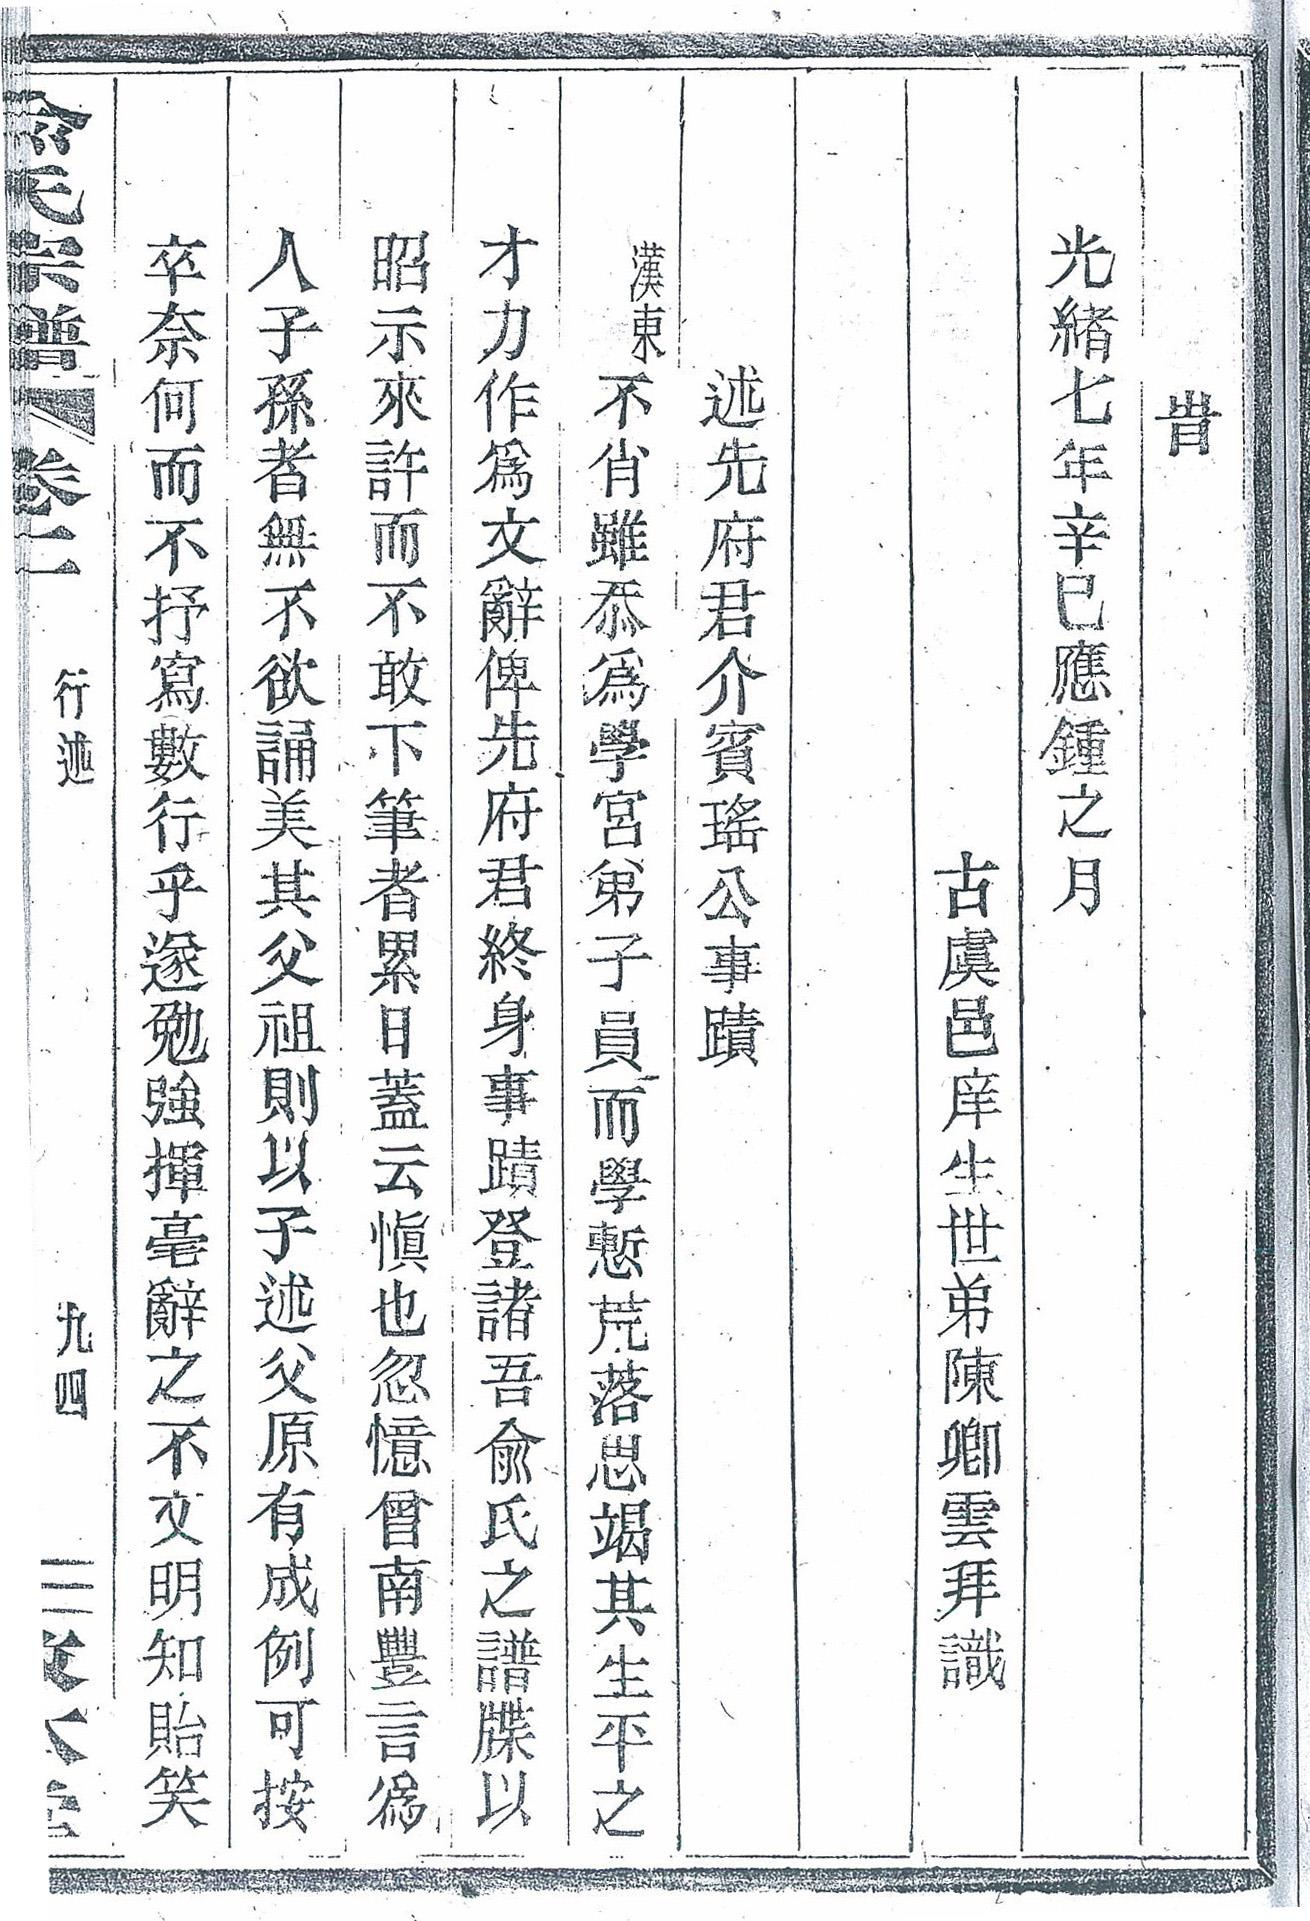 旹
光緒七年辛巳應鍾之月
古虞邑庠生世弟陳卿雲拜識
述先府君介賓瑤公事蹟
漢東不肖雖忝爲學宮弟子員而學慙荒落思竭其生平之
才力作爲文辭俾先府君終身事蹟登諸吾俞氏之譜牒以
昭示來許而不敢下筆者累日蓋云愼也忽憶曾南豐言爲
人子孫者無不欲誦美其父祖則以子述父原有成例可按
卒奈何而不抒寫數行乎遂勉強揮毫辭之不文明知貽笑
俞氏宗譜 卷二 行述 九四